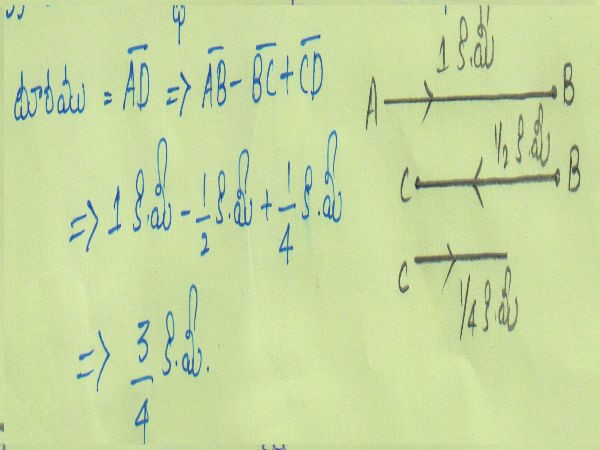 దూరము = A̅D̅ => A̅B̅ - B̅C̅ + C̅D̅
=> 1 కి.మీ - 1/2 కి.మీ + 1/4 కి.మీ
=> 3/4 కి.మీ.
1 కి.మీ
A B
1/2 కి.మీ
C B
C
1/4 కి.మీ